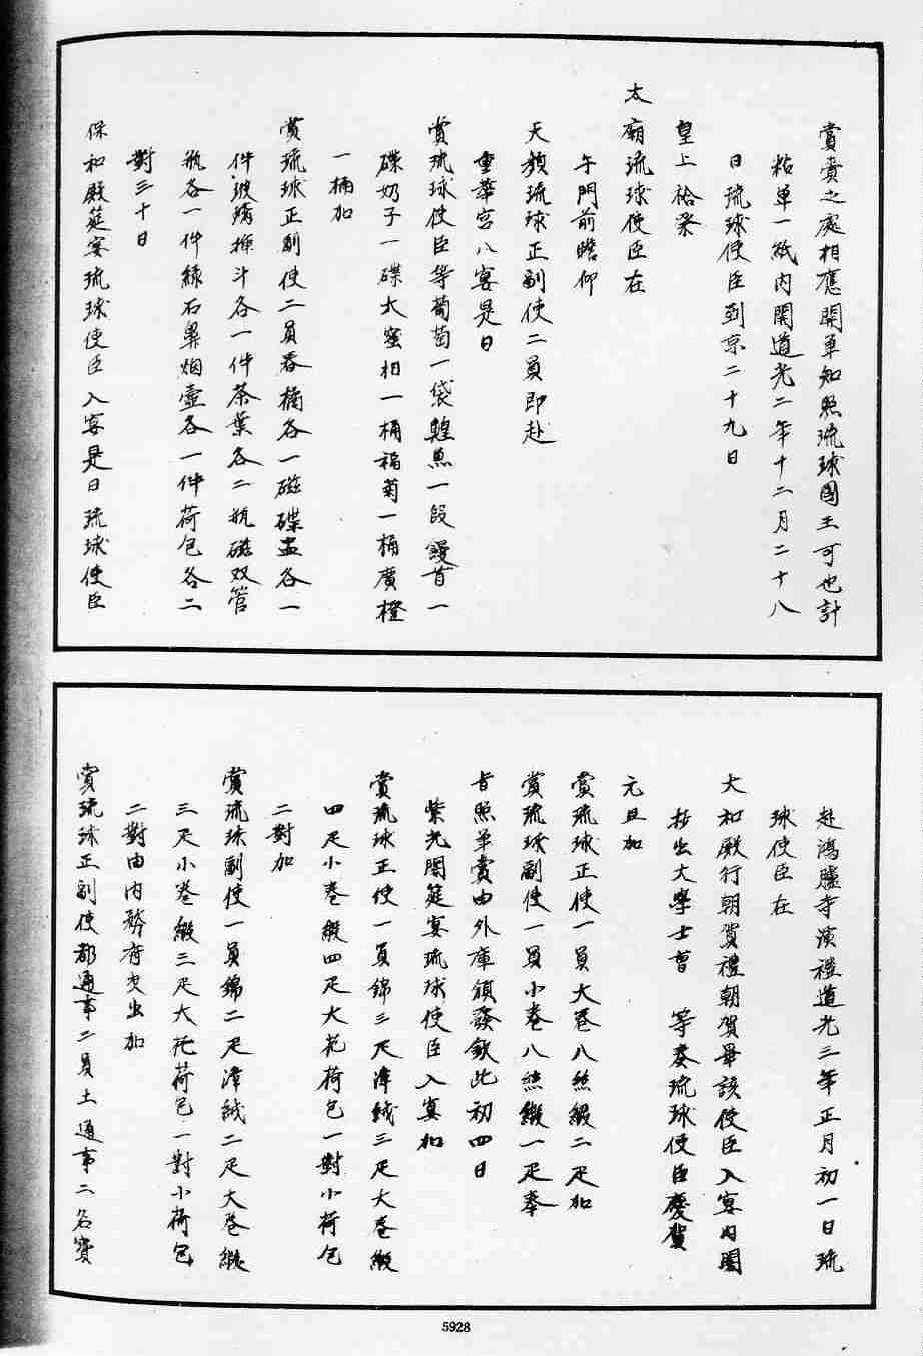 賞賚之處相應開單知照琉球國王可也計
粘單一紙內開道光二年十二月二十八
日琉球使臣到京二十九日
皇上祫祭
太廟琉球使臣在
午門前瞻仰
天顏琉球正副使二員即赴
重華宮入宴是日
賞琉球使臣等葡萄一袋鰉魚一段饅首一
碟奶子一碟大蜜柑一桶福菊一桶廣橙
一桶加
賞琉球正副使二員春橘各一磁碟盅各一
件玻璃揷斗各一件茶葉各二瓶磁双管
瓶各一件綠石鼻烟壺各一件荷包各二
對三十日
保和殿筵宴琉球使臣入宴是日琉球使臣
赴鴻臚寺演禮道光三年正月初一日琉
球使臣在
太和殿行朝賀禮朝賀畢該使臣入宴內閣
抄出大學士曹 等奏琉球使臣慶賀
元旦加
賞琉球正使一員大卷八絲緞二疋加
賞琉球副使一員小卷八絲緞一疋奉
旨照單賞由外庫頒發欽此初四日
紫光閣筵宴琉球使臣入宴加
賞琉球正使一員錦三疋漳絨三疋大卷緞
四疋小卷緞四疋大花荷包一對小荷包
二對加
賞琉球副使一員錦二疋漳絨二疋大卷緞
三疋小卷緞三疋大花荷包一對小荷包
二對由內務府交出加
賞琉球正副使都通事二員土通事二名賚
5928